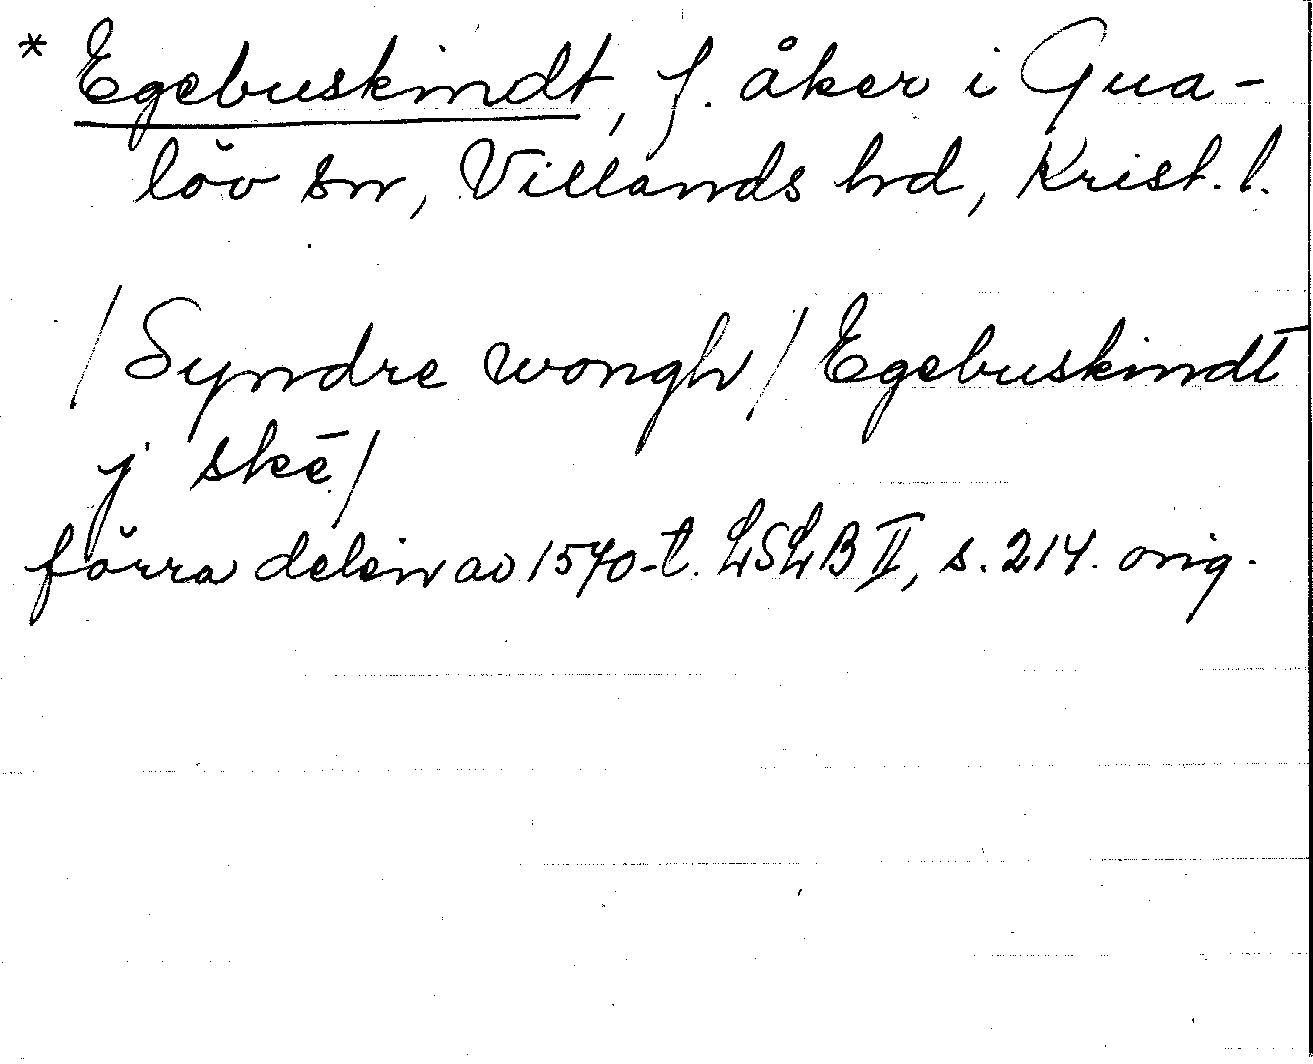 * Egebuskindt, f. åker i Gua-
löv sn, Villands hd, Krist. l.
/Syndre wongh/ Egebuskindt
j skē/
förra delen av 1570-t. LSLB II, s. 214. orig.